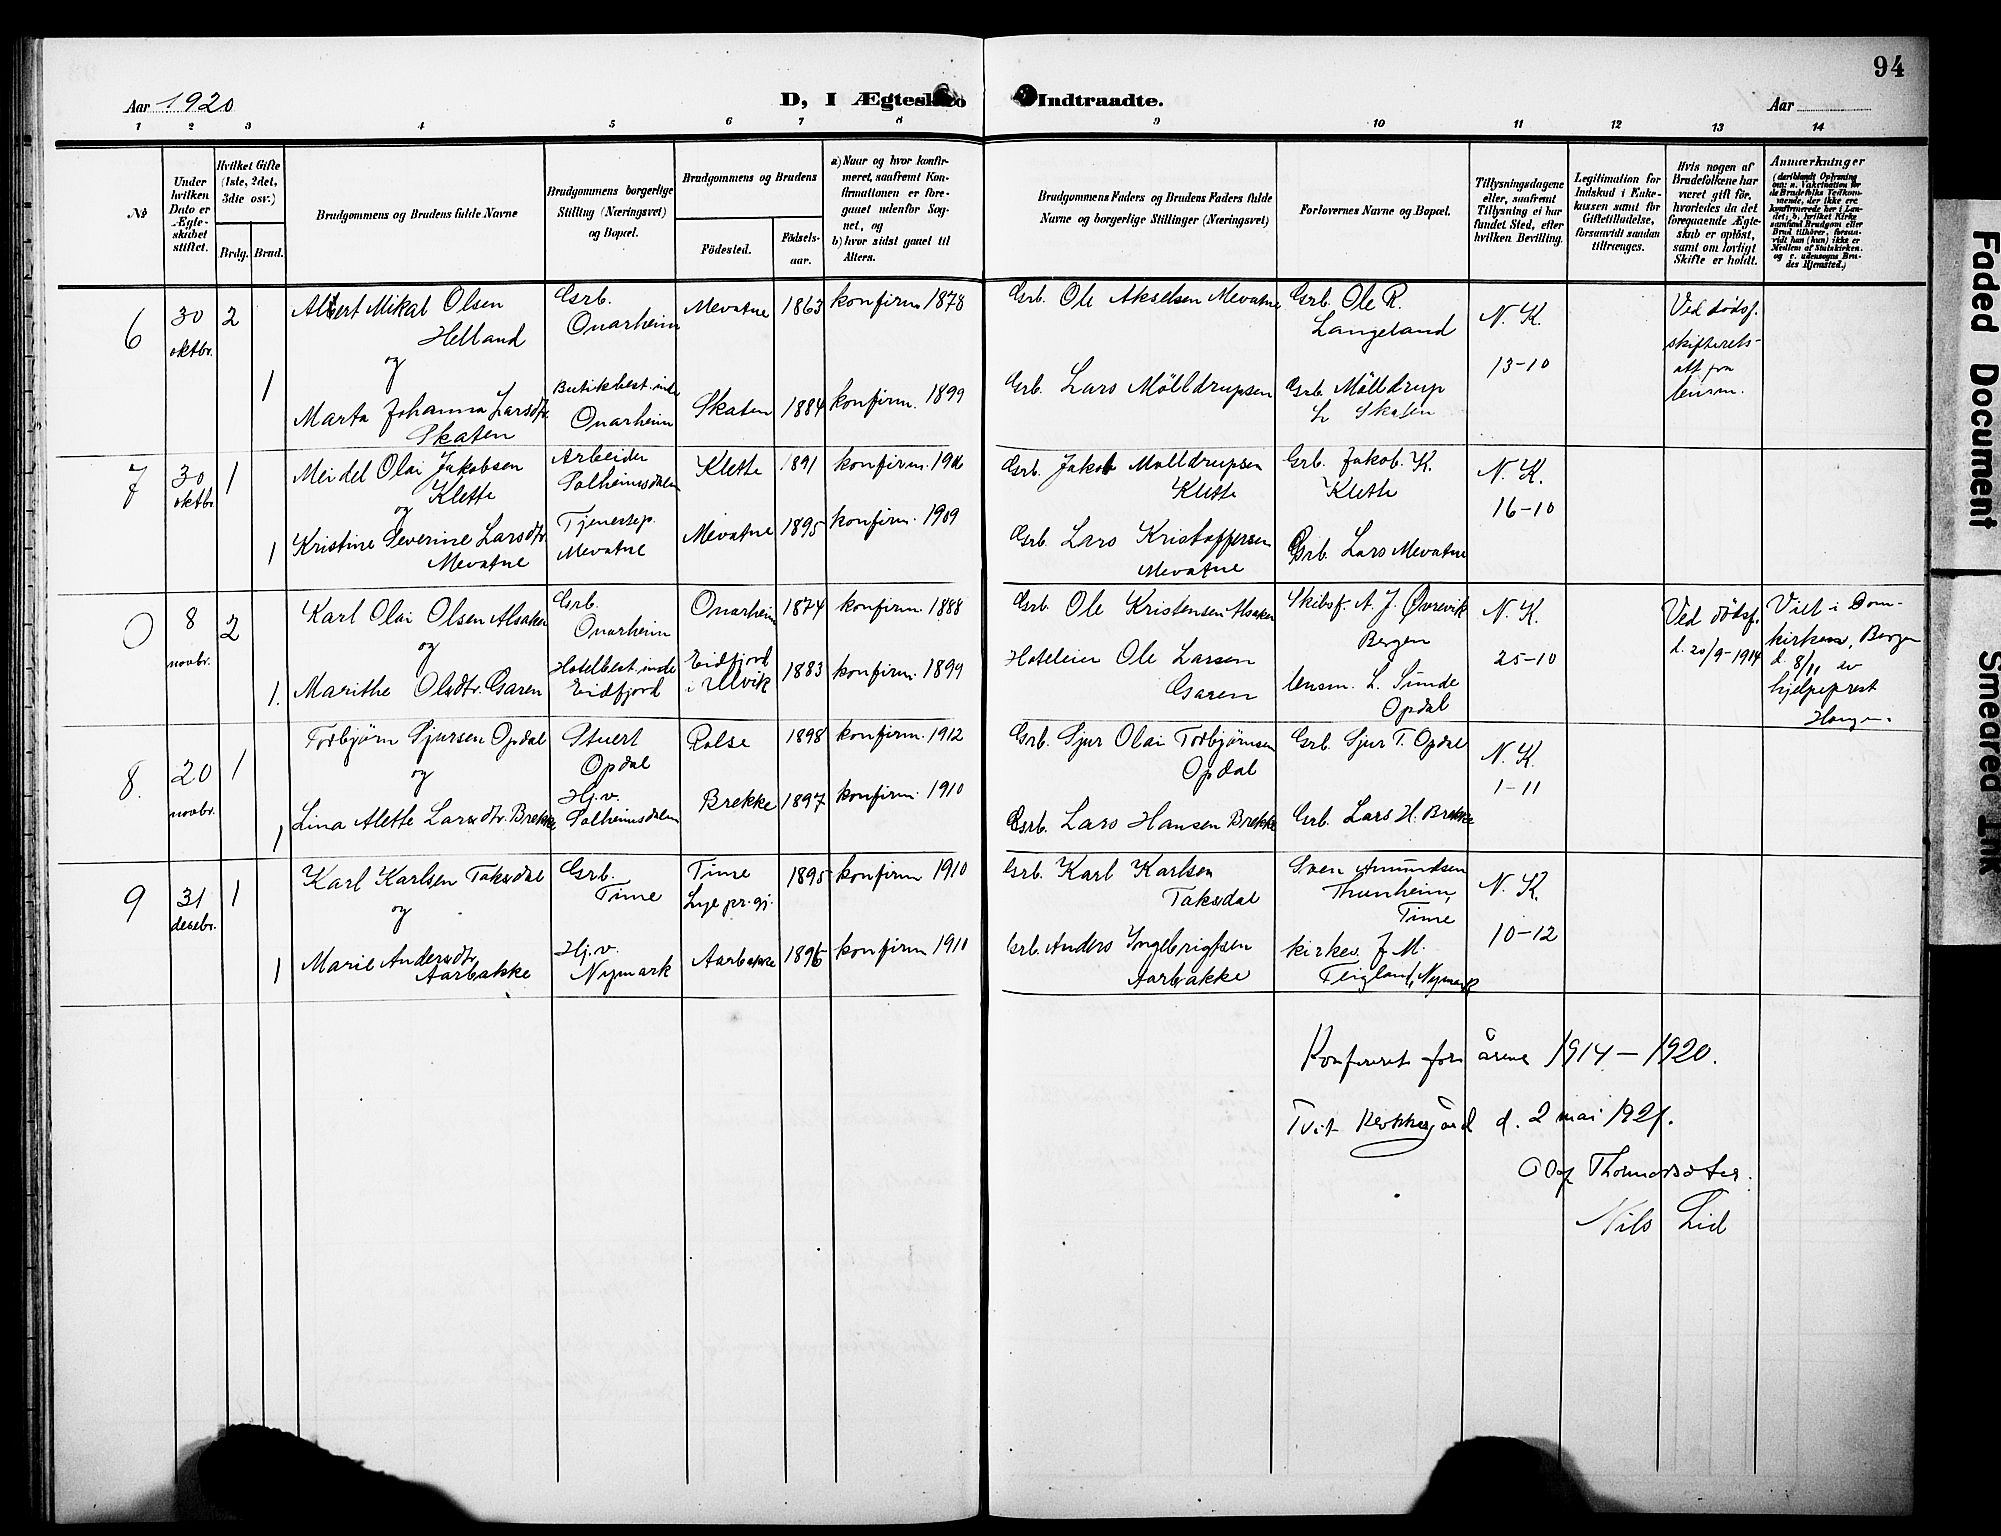 94
Aar 1920
D, I Ægteskab Indtraadte.
Aar
1 2 3 4 5 6 7 8 9 10 11 12 13 14
No
Under hvilken Dato er Ægteskabet stiftet.
Hvilket Gifte (1ste, 2det, 3die osv.)
Brdg. Brud.
Brudgommens og Brudens fulde Navne
Brudgommens borgerlige Stilling (Næringsvei) og Bopæl.
Brudgommens og Brudens
Fødested.
Fødselsaar.
a) Naar og hvor konfirmeret, saafremt Konfirmationen er foregaaet udenfor Sognet, og
b) hvor sidst gaaet til Alters.
Brudgommens Faders og Brudens Faders fulde Navne og borgerlige Stillinger (Næringsvei)
Forlovernes Navne og Bopæl.
Tillysningsdagene eller, saafremt Tillysning ei har fundet Sted, efter hvilken Bevilling.
Legitimation for Indskud i Enkekassen samt for Giftetilladelse, forsaavidt saadan tiltrænges.
Hvis nogen af Brudefolkene har været gift før, hvorledes da det foregaaende Ægteskab er opløst, samt om lovligt Skifte er holdt.
Anmærkninger (deriblandt Oplysning om: a. Vakcination for de Brudefolks Vedkommende, der ikke ere konfirmerede her i Landet; b. hvilket Kirkesamfund Brudgom eller Brud tilhører, forsaavidt han (hun) ikke er Medlem af Statskirken, og c. udensogns Brudes Hjemsted.)
6 30 oktbr. 2 Albert Mikal Olsen Helland Grb. Onarheim Mevatne 1863 konfirm 1878 Grb. Ole Akselsen Mevatne Grb. Ole R. Langeland N. K. 13-10 Ved dødsf. skifterets-att fra lensm.
og
1 Marta Johanna Larsdtr. Skaten Butikbest.inde Onarheim Skaten 1884 konfirm. 1899 Grb. Lars Mölldrupsen Grb. Mölldrup L. Skaten
7 30 oktbr. 1 Meidel Olai Jakobsen Klette Arbeider Solheimsdalen Klette 1891 konfirm. 1906 Grb. Jakob Molldrupsen Klette Grb. Jakob. K. Klette N. K. 16-10
og
1 Kristine Severine Larsdtr. Mevatne Tjenersep. Mevatne Mevatne 1895 konfirm. 1909 Grb. Lars Kristoffersen Mevatne Grb. Lars Mevatne
0 8 novbr. 2 Karl Olai Olsen Alsaker Grb. Onarheim Onarheim 1874 konfirm. 1888 Grb. Ole Kristensen Alsaker Skibsf. A. J. Øvrevik Bergen N. K. 25-10 Ved dødsf. d. 20/9-1914 Viet i Domkirken, Bergen d. 8/11 av hjelpeprest
og
1. Marithe Olsdtr. Garen Hotelbest.inde Eidfjord Eidfjord i Ulvik 1883 konfirm. 1899 Hoteleier Ole Larsen Garen lensm. L. Sunde Opdal
8. 20 novbr. 1 Torbjørn Sjursen Opdal Stuert Opdal Rolse 1898 konfirm. 1912 Grb. Sjur Olai Torbjørnsen Opdal Grb. Sjur T. Opdal N. K. 1-11
og
1 Lina Alette Larsdtr. Brekke Hj.v. Solheimsdalen Brekke 1897 konfirm. 1910 Grb. Lars Hansen Brekke Grb. Lars H. Brekke
9 31 desebr. 1 Karl Karlsen Taksdal Grb. Time Time Lye pr.gj. 1895 konfirm 1910 Grb. Karl Karlsen Taksdal Sven Amundsen Thunheim, Time N. K. 10-12
og
1 Marie Andersdtr. Aarbakke Hj.v. Nymark Aarbakke 1896 konfirm 1910 Grb. Anders Ingebrigtsen Aarbakke kirkes. J. M. Teigland, Nymark
Konfereret for årene 1914 – 1920.
Tveit d. 2 mai 1921.
Nils Lid
Faded Document
Smeared Ink